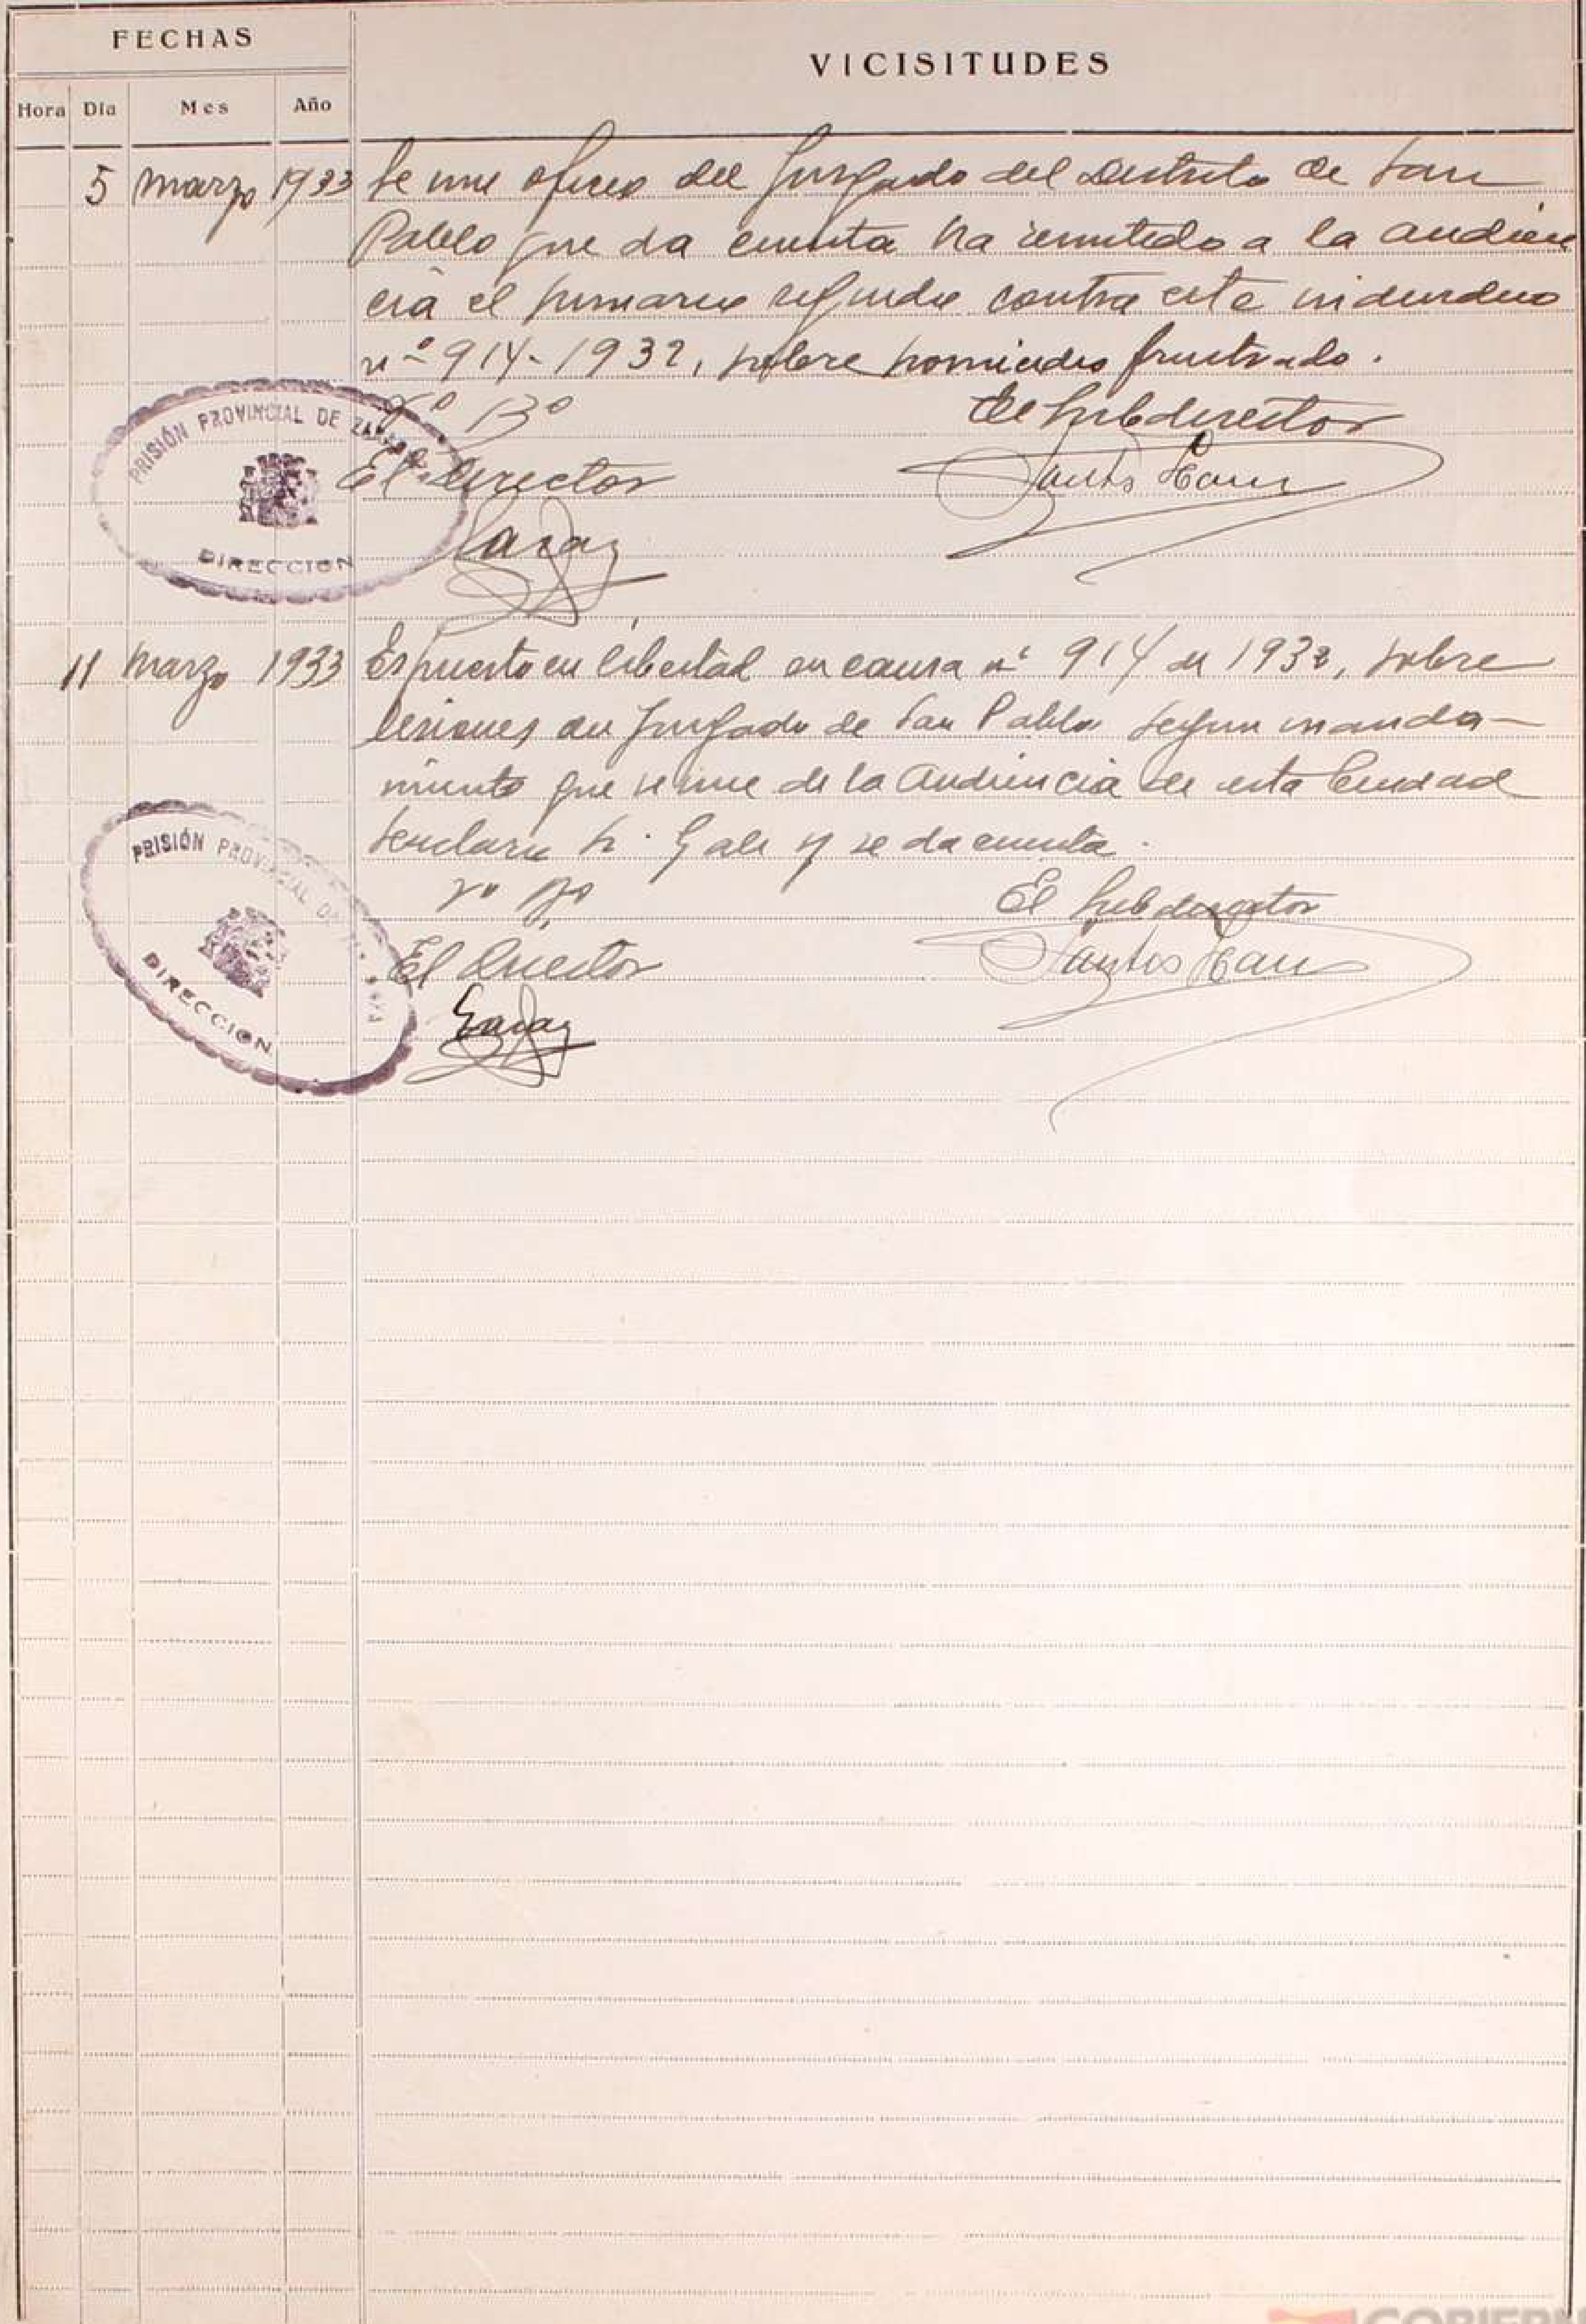 FECHAS
VICISITUDES
Hora Dia Mes Año
5 Marzo 1933 Se une oficio del Juzgado del Distrito de San
Pablo que da cuenta ha remitido a la Audien
cia el sumario seguido contra este individuo
nº 914-1932, sobre homicidio frustrado.
Vº Bº El Subdirector
PRISIÓN PROVINCIAL DE
El Director
DIRECCION
11 Marzo 1933 Es puesto en libertad en causa nº 914 de 1932, sobre
lesiones del Juzgado de San Pablo segun manda-
miento que se une de la Audiencia de esta Ciudad
Secretario Sr. y se da cuenta.
PRISIÓN PROVINCIAL DE
Vº Bº El Subdirector
El Director
DIRECCION